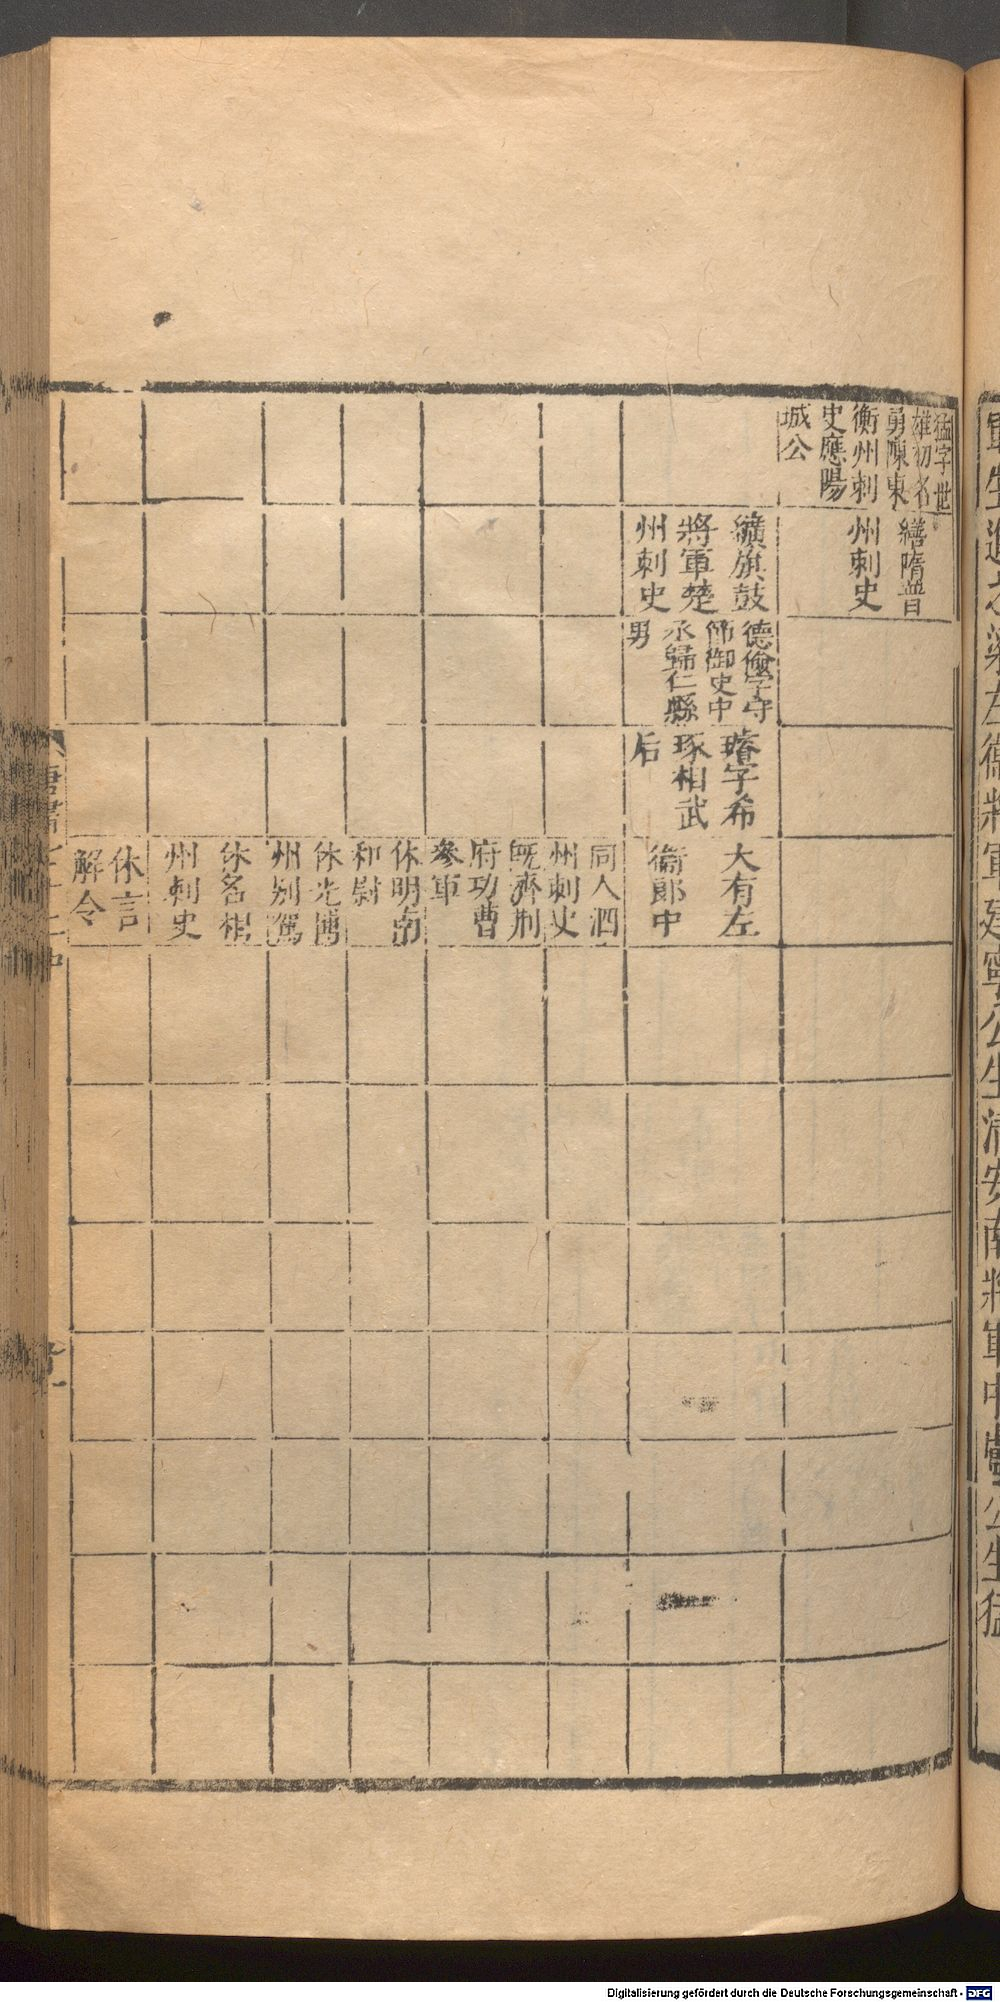 猛字世
雄初名
勇陳東
衡州刺
史應陽
城公
繕隋普
州刺史
纊旗鼓
將軍楚
州刺史
德儉字守
節御史中
丞歸仁縣
男
璿字希
琢相武
后
大有左
衞郎中
同人泗
州刺史
旣濟荆
府功曹
參軍
休明南
和尉
休光博
州别駕
休名相
州刺史
休言
解令
唐書七十二中
軍生進之梁左衞將軍建寧公生清安南將軍中廬公生猛
Digitalisierung gefördert durch die Deutsche Forschungsgemeinschaft - DFG